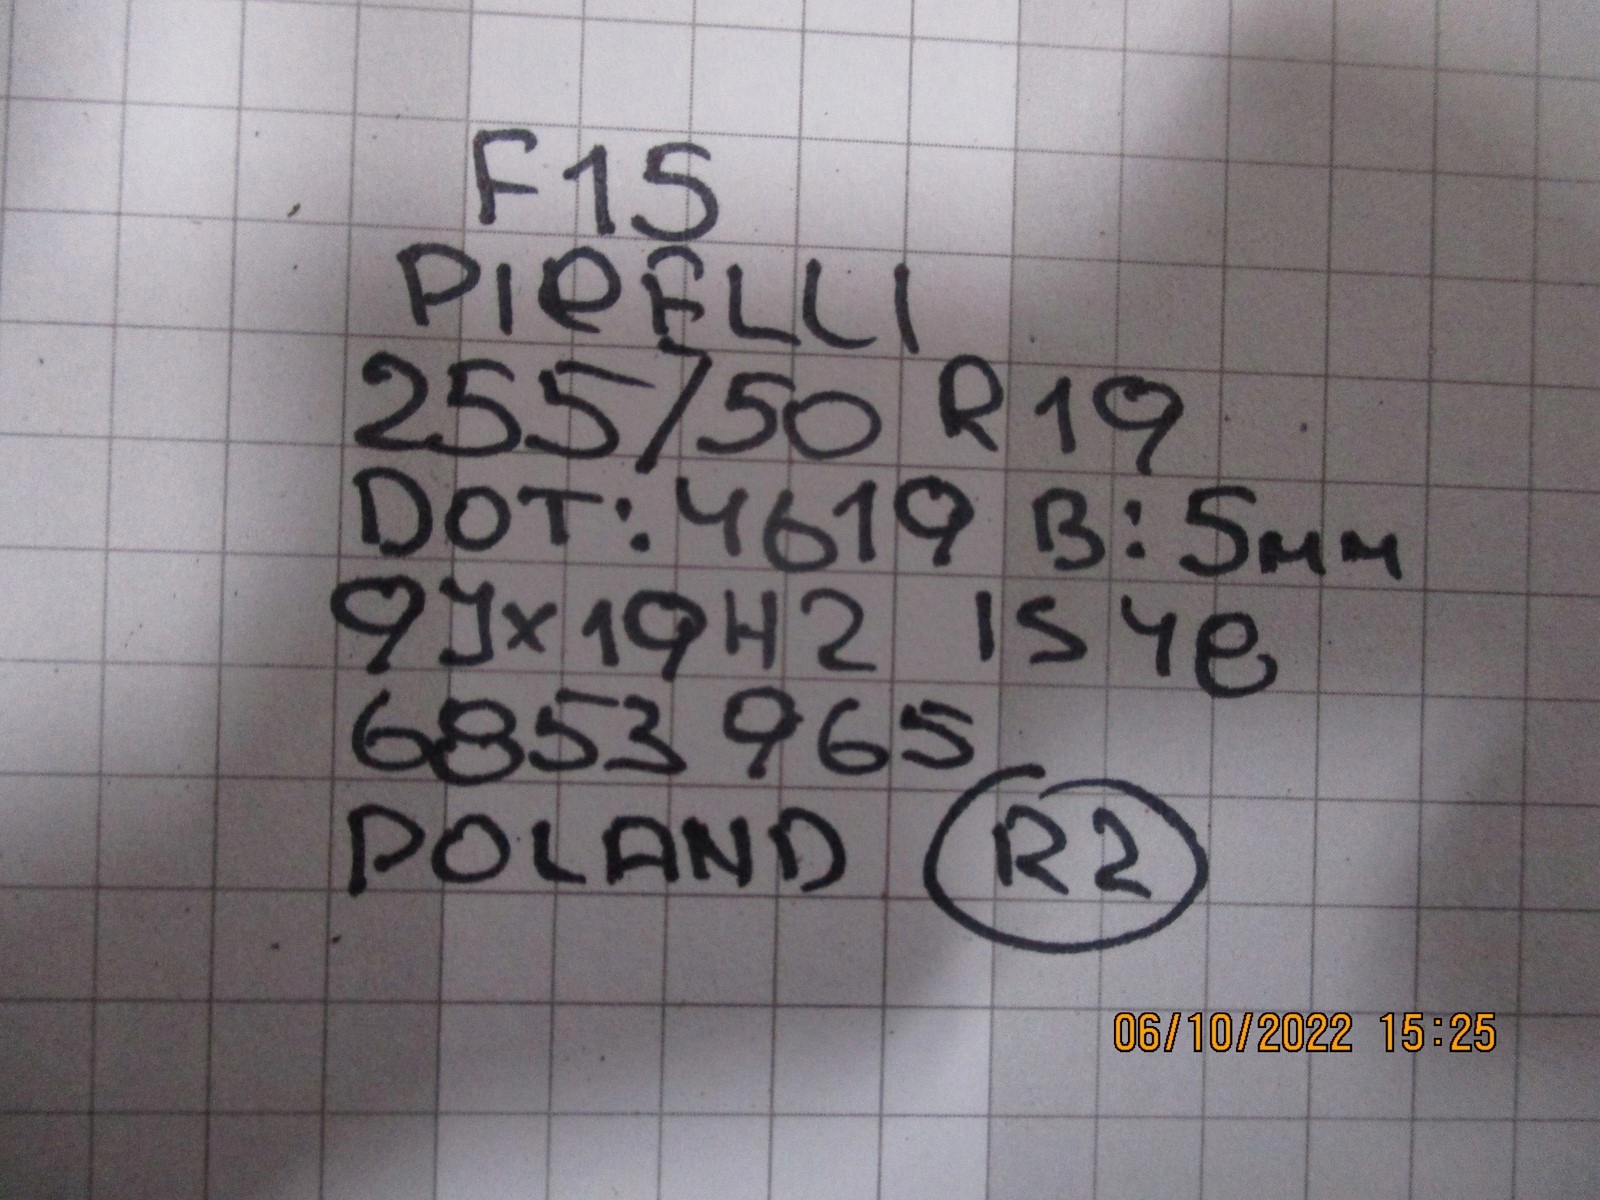 F15
PIRELLI
255/50 R19
DOT: 4619 B: 5мм
9Jx19H2 IS 48
6853 965
POLAND R2
06/10/2022 15:25